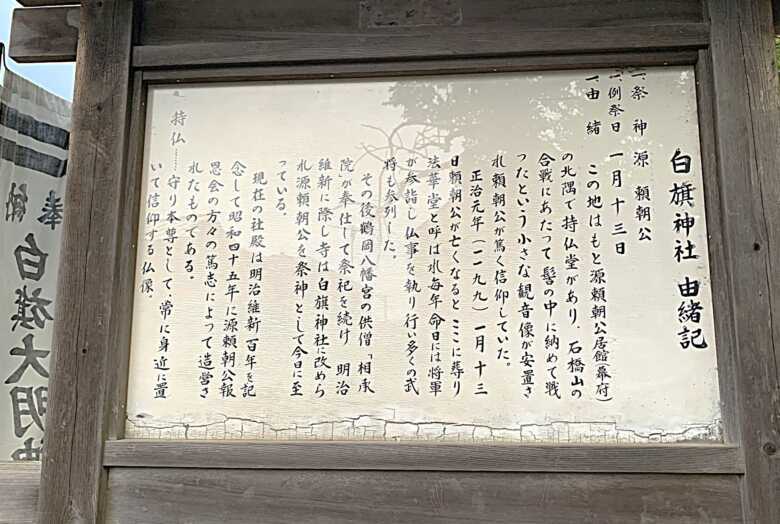 白旗神社 由緒記
一、祭神 源 頼朝公
一、例祭日 一月十三日
一、由緒 この地はもと源頼朝公居館(幕府)
の北隅で持仏堂があり、石橋山の
合戦にあたって髻の中に納めて戦
ったという小さな観音像が安置さ
れ頼朝公が篤く信仰していた。
正治元年(一一九九)一月十三
日頼朝公が亡くなると ここに葬り
法華堂と呼ばれ毎年命日には将軍
が参詣し仏事を執り行い多くの武
将も参列した。
その後鶴岡八幡宮の供僧「相承
院」が奉仕して祭祀を続け 明治
維新に際し寺は白旗神社に改めら
れ源頼朝公を祭神として今日に至
っている。
現在の社殿は明治維新百年を記
念して昭和四十五年に源頼朝公報
恩会の方々の篤志によって造営さ
れたものである。
持仏……守り本尊として、常に身近に置
いて信仰する仏像。
奉納
白旗大明神